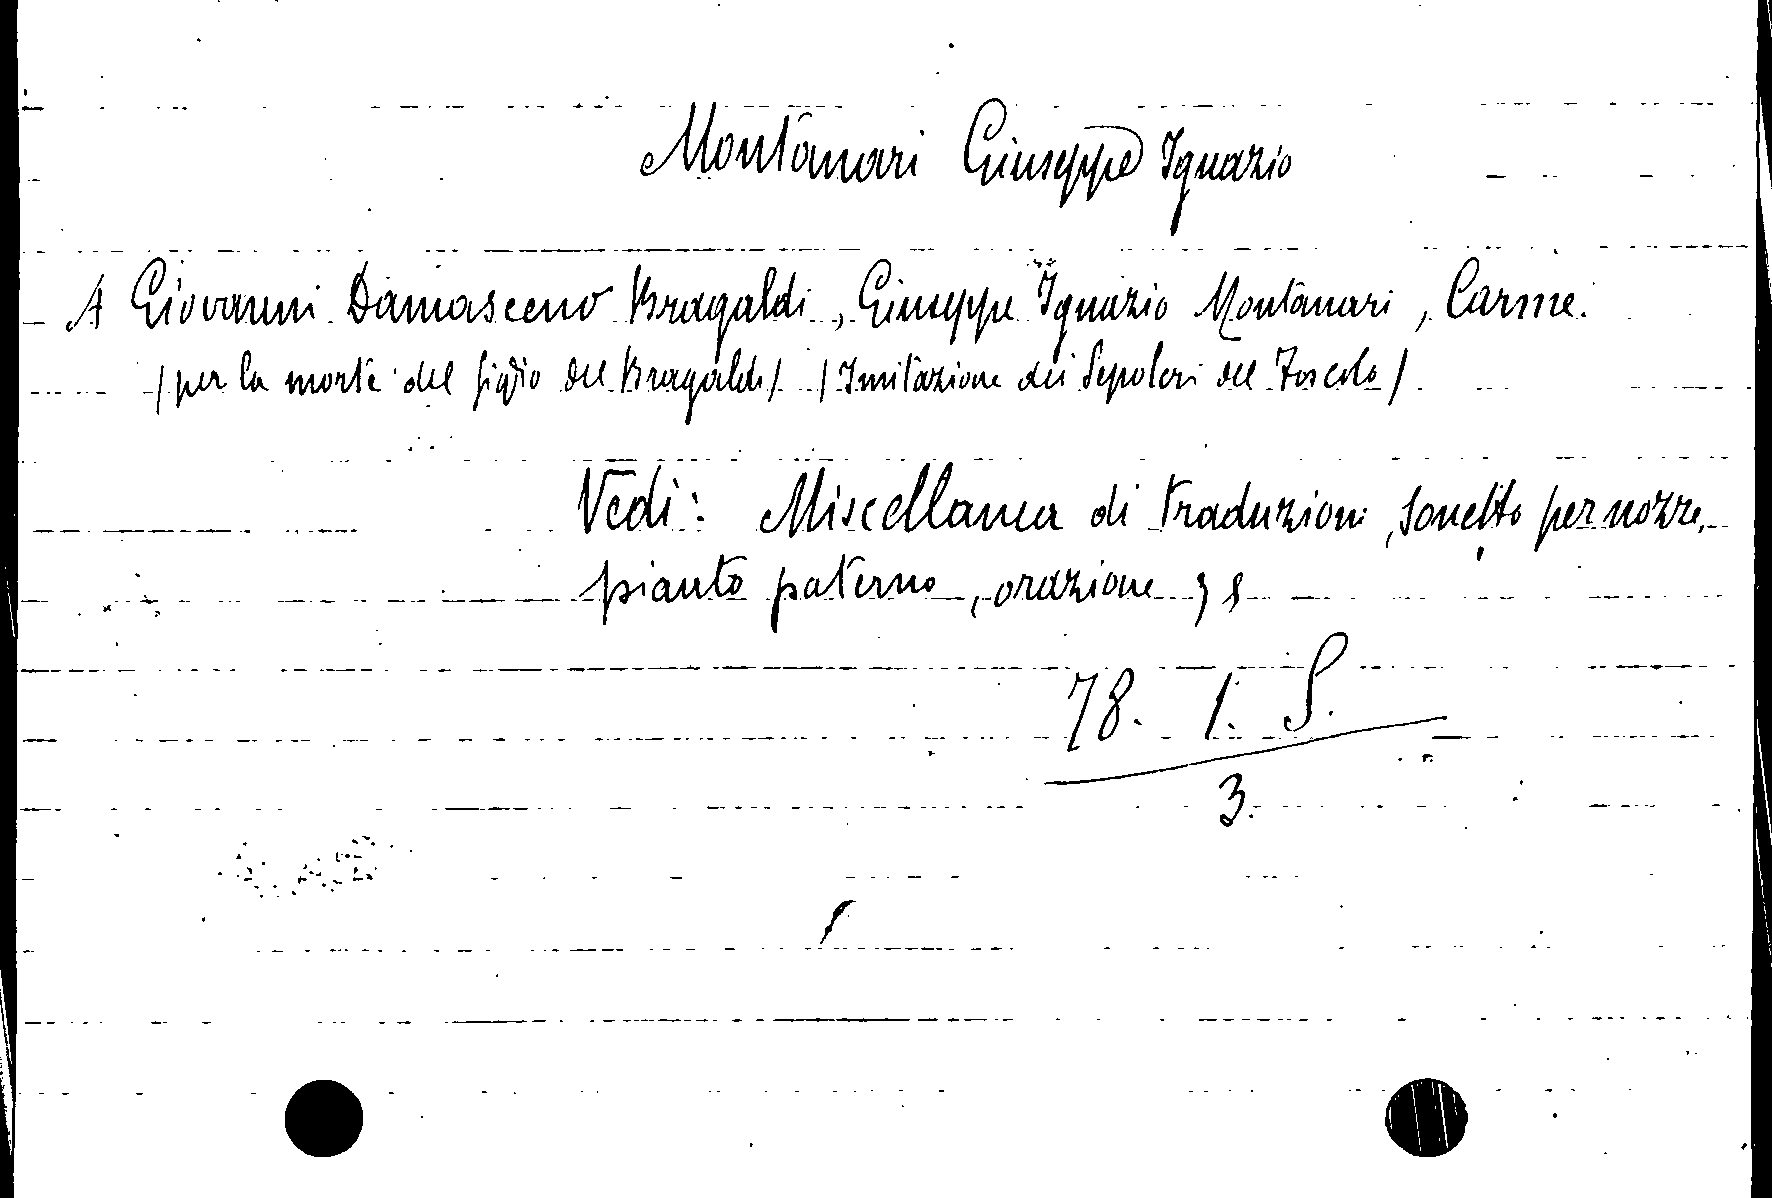 Montanari Giuseppe Ignazio
A Giovanni Damasceno Bragaldi, Giuseppe Ignazio Montanari, Carme.
/per la morte del figlio del Bragaldi/ /Imitazione dei Sepolcri del Foscolo/
Vedi: Miscellanea di traduzioni, sonetto per nozze,
pianto paterno, orazione
78. 1. S.
3.